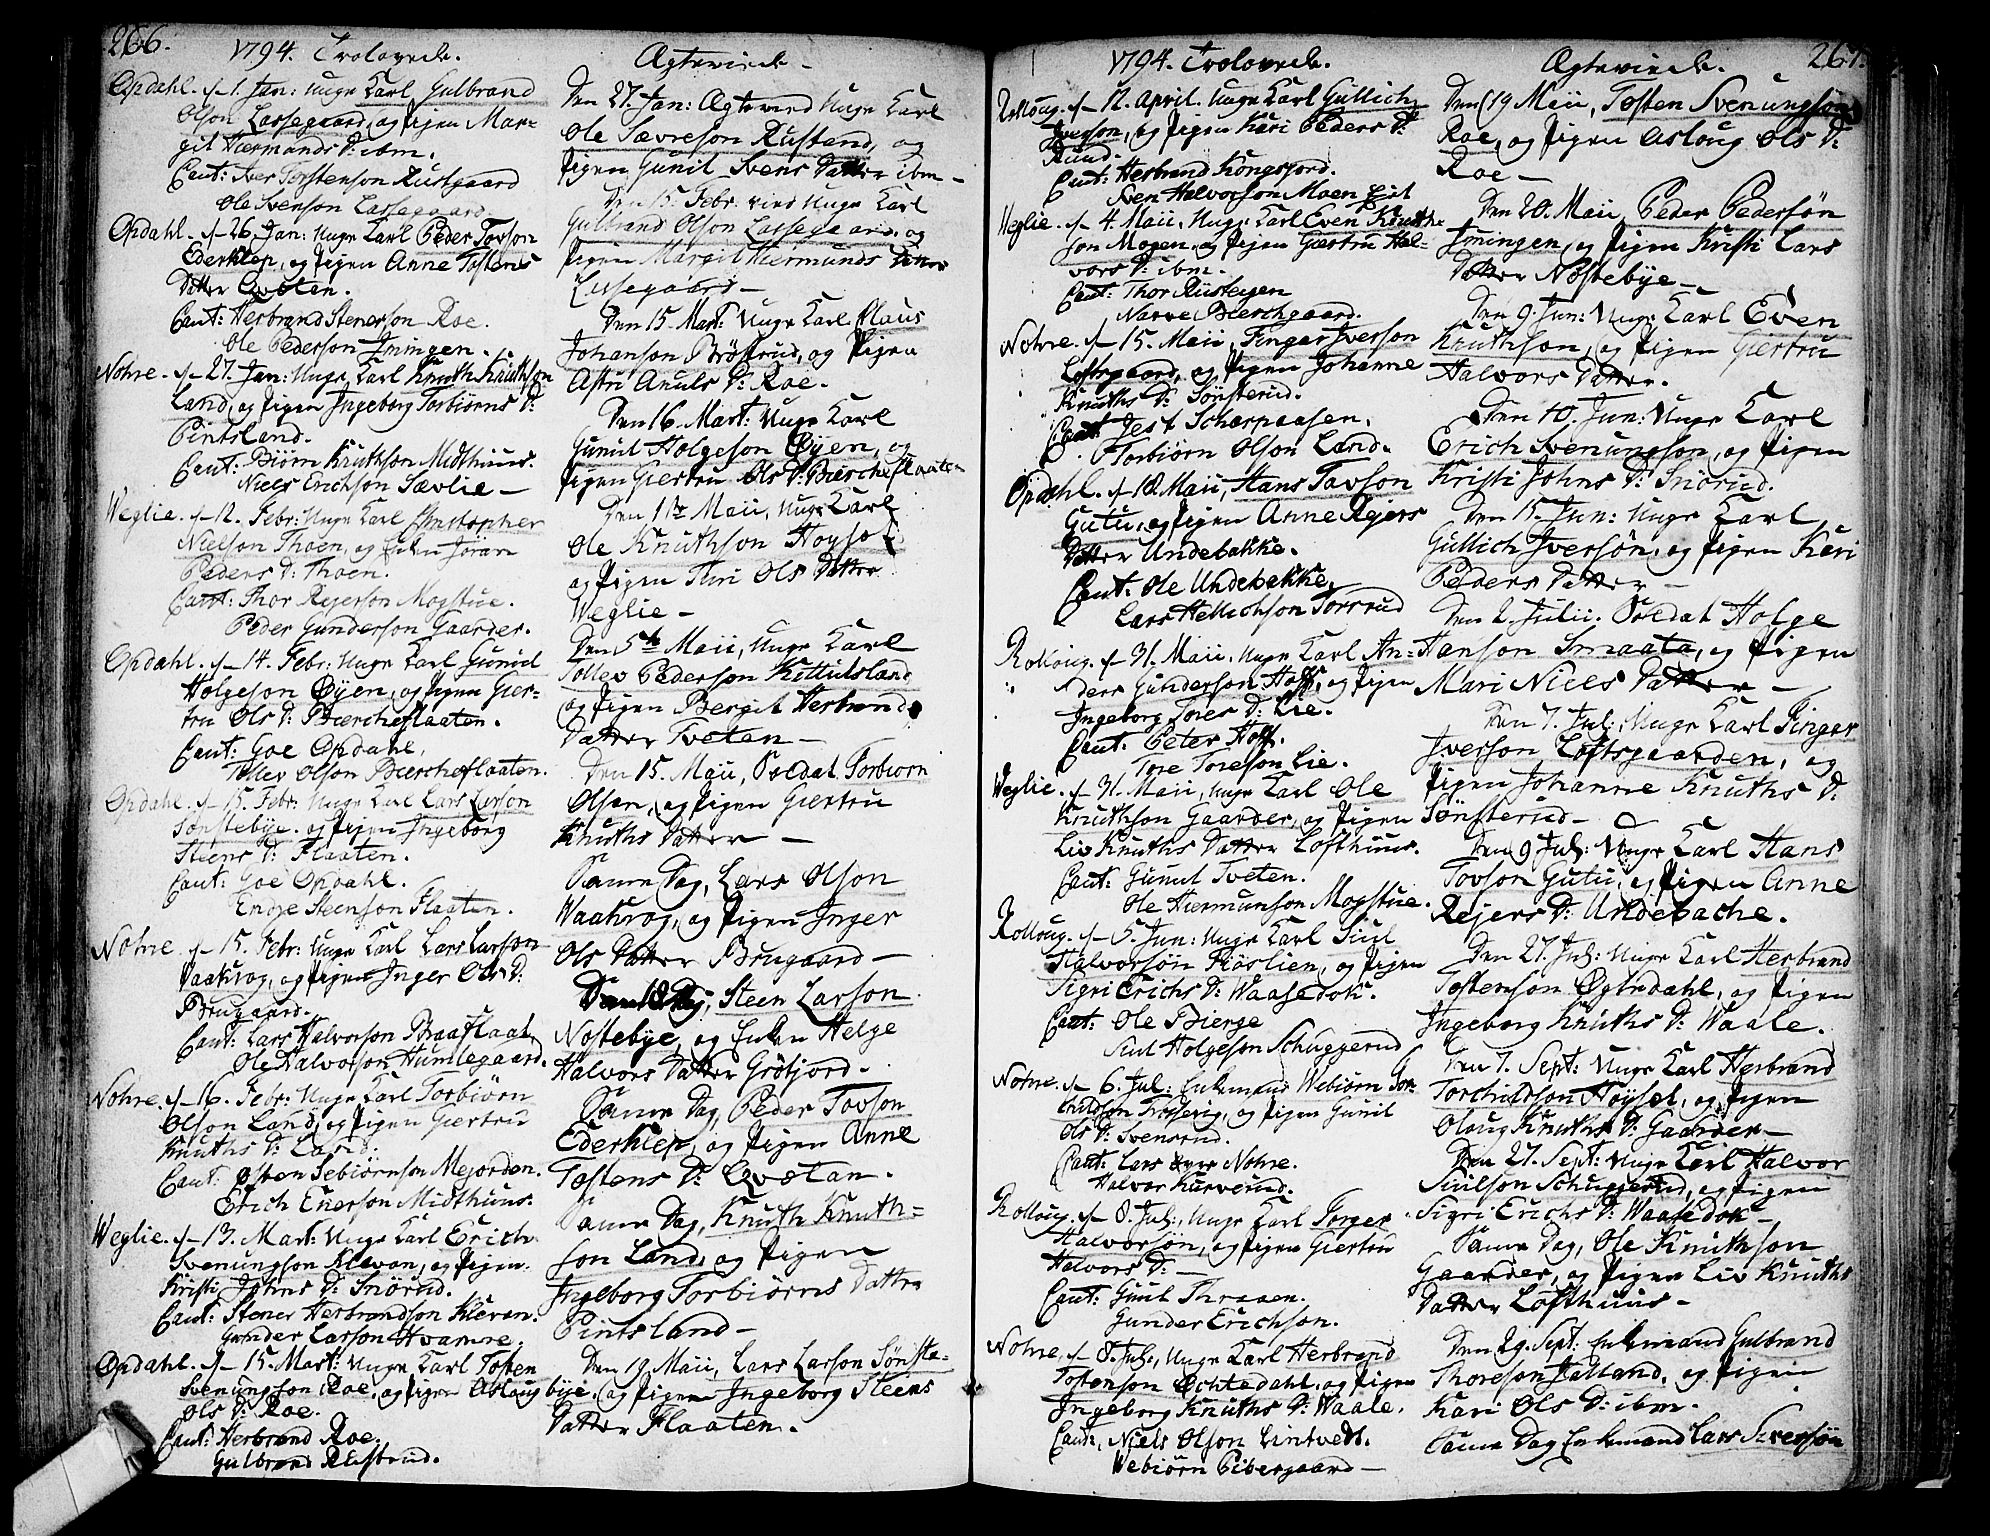 266.
1794. Trolovede.
Opdahl. d. 1. Jan: Unge Karl Gulbrand
Olson Lassegaard, og Pigen Mar-
git Hermunds D: ibm.
Caut: Iver Torstenson Rustgaard
Ole Svenson Lassegaard.
Opdahl. d. 26. Jan: Unge Karl Peder Tovson
Ederklep, og Pigen Anne Tostens
Datter Qveten.
Caut: Herbrand Stenerson Roe.
Ole Pederson Imingen.
Nohre. d. 27. Jan: Unge Karl Knuth Knuthson
Land, og Pigen Ingeborg Torbiørns D:
Pintsland.
Caut: Biørn Knuthson Midthuus.
Niels Erichson Sævlie —
Weglie. d. 12. Febr: Unge Karl Christopher
Nielson Thoen, og Enken Jøran
Peders D: Thoen.
Caut: Thor Rejerson Mogstue.
Peder Gunderson Gaarder.
Opdahl. d. 14. Febr: Unge Karl Gunul
Holgeson Øyen, og Pigen Gier-
tru Ols D: Bierkeflaaten.
Caut: Goe Opdahl,
Tollev Olson Biercheflaaten.
Opdahl. d. 15. Febr: Unge Karl Lars Larson
Sønstebye. og Pigen Ingeborg
Steens D: Flaaten.
Caut: Goe Opdahl.
Endre Steenson Flaaten.
Nohre d. 15. Febr: Unge Karl Lars Larson
Vaakrog, og Pigen Inger Ols D:
Brugaard.
Caut: Lars Halvorson Braaflaat,
Ole Halvorson Humlegaard.
Nohre. d. 16. Febr: Unge Karl Torbiørn
Olson Land, og Pigen Giertrud
Knuths D: Land.
Caut: Østen Sebiørnson Mejorden.
Erich Enerson Midthuus.
Weglie. d. 13. Mart: Unge Karl Erich
Svenungson Kleven, og Pigen
Kristi Johns D: Snörud.
Caut: Stener Herbrandson Kleven.
Gunder Larson Hvamme.
Opdahl. d. 15. Mart: Unge Karl Tosten
Svenungson Roe, og Pigen Asloug
Ols D: Roe.
Caut: Herbrand Roe.
Gulbrand Rustrud.
Ægteviede.
Den 27. Jan: Ægteviet Unge Karl
Ole Sævreson Rustand, og
Pigen Gunil Svens Datter ibm —
Den 15. Febr. vied Unge Karl
Gulbrand Olson Lassegaard, og
Pigen Margit Hermunds Datter
Lassegaard —
Den 15. Mart: Unge Karl Claus
Johanson Brøstrud, og Pigen
Astri Anuls D: Roe.
Den 16. Mart: Unge Karl
Gunul Holgeson Øyen, og
Pigen Giertru Ols D: Biercheflaaten
Den 1te Maii, Unge Karl
Ole Knuthson Høysel
og Pigen Turi Ols Datter
Weglie —
Den 5te Maii, Unge Karl
Tollev Pederson Kittilsland
og Pigen Bergit Herbrands
Datter Tveten —
Den 15. Maii, Soldat Torbiørn
Olson, og Pigen Giertru
Knuths Datter —
Samme Dag, Lars Olson
Waakrog, og Pigen Inger
Ols Datter Brugaard —
Den 18 Maj, Steen Larson
Nøstebye, og Enken Helge
Halvors Datter Grötjord.
Samme Dag, Peder Tovson
Ederklep, og Pigen Anne
Tostens D: Qvetan.
Samme Dag, Knuth Knuth-
son Land, og Pigen
Ingeborg Torbiørns Datter
Pintsland —
Den 19 Maii, Lars Larson Sønste-
bye, og Pigen Ingeborg Steens
Datter Flaaten.
267.
1794. Trolovede.
Rolloug. d. 12. April. Unge Karl Gullich
Iverson, og Pigen Kari Peders D:
Ruud.
Caut: Herbrand Kongsjord.
Sven Halvorson Moen
Weglie. d. 4. Maii, Unge Karl Even Knuth-
son Mogen, og Pigen Giertru Hal-
vors D: ibm.
Caut: Thor Rustegen
Narve Bierchgaard.
Nohre. d. 15. Maii, Fingar Iverson
Loftsgaard, og Pigen Johanne
Knuths D: Sønsterud.
Caut: Jest Scharpaasen.
Torbiørn Olson Land.
Opdahl. d. 18. Maii, Hans Tovson
Gutu, og Pigen Anne Rejers
Datter Undebakke.
Caut: Ole Undebakke,
Lars Hellichson Torrud
Rolloug. d. 31. Maii, Unge Karl An-
ders Gunderson Hoff, og Pigen
Ingeborg Tores D: Lie.
Caut. Peter Hoff.
Tore Toreson Lie.
Weglie. d. 31. Maii, Unge Karl Ole
Knuthson Gaarder, og Pigen
Liv Knuths Datter Lofthuus.
Caut: Gunul Tveten.
Ole Hermunson Mogstue.
Rolloug. d. 5. Jun: Unge Karl Siul
Halvorsøn Fiøslien, og Pigen
Sigri Erichs D: Waasedok.
Caut: Ole Bierge
Siul Holgeson Schuggerud
Nohre. d. 6. Jul: Enkemand Webiørn Tor-
childson Frøserig, og Pigen Gunil
Ols D: Svensrud.
Caut: Lars Nohre.
Halvor Kurverud.
Rolloug. d. 8. Jul:, Unge Karl Torger
Halvorsøn, og Pigen Giertru
Halvors D: —
Caut: Guul Thraaen.
Gunder Erichson.
Nohre, d. 8. Jul:, Unge Karl Herbrand
Tostenson Öchtedahl, og Pigen
Ingeborg Knuths D: Waale.
Caut:, Niels Olson Lintvedt.
Webiørn Bibergaard —
Ægteviede.
Den 19 Maii, Tosten Svenungsøn
Roe, og Pigen Asloug Ols D:
Roe —
Den 20. Maii, Peder Pedersøn
Imingen, og Pigen Kristi Lars
Datter Nøstebye —
Den 9. Jun: Unge Karl Even
Knuthson, og Pigen Giertru
Halvors Datter.
Den 10. Jun: Unge Karl
Erich Svenungson, og Pigen
Kristi Johns D: Snörud.
Den 15. Jun: Unge Karl
Gullich Iversøn, og Pigen Kari
Peders Datter —
Den 2. Julii. Soldat Holge
Hanson Smaata, og Pigen
Mari Niels Datter —
Den 7. Jul: Unge Karl Finger
Iverson Loftsgaarden, og
Pigen Johanne Knuths D:
Sønsterud —
Den 9 Jul: Unge Karl Hans
Tovson Gutu, og Pigen Anne
Rejers D: Undebache.
Den 27. Jul: Unge Karl Herbrand
Tostenson Øgtedahl, og Pigen
Ingeborg Knuths D: Waale.
Den 7. Sept: Unge Karl Herbrand
Torchildson Høysel, og Pigen
Oloug Knuths D: Gaarder —
Den 27. Sept: Unge Karl Halvor
Siulson Schuggerud, og Pigen
Sigri Erichs D: Waasedok —
Samme Dag, Ole Knuthson
Gaarder, og Pigen Liv Knuths
Datter Lofthuus —
Den 29. Sept: Enkemand Gulbrand
Thoreson Juland, og Pigen
Kari Ols D: ibm.
Samme Dag Enkemand Lars Sversøn